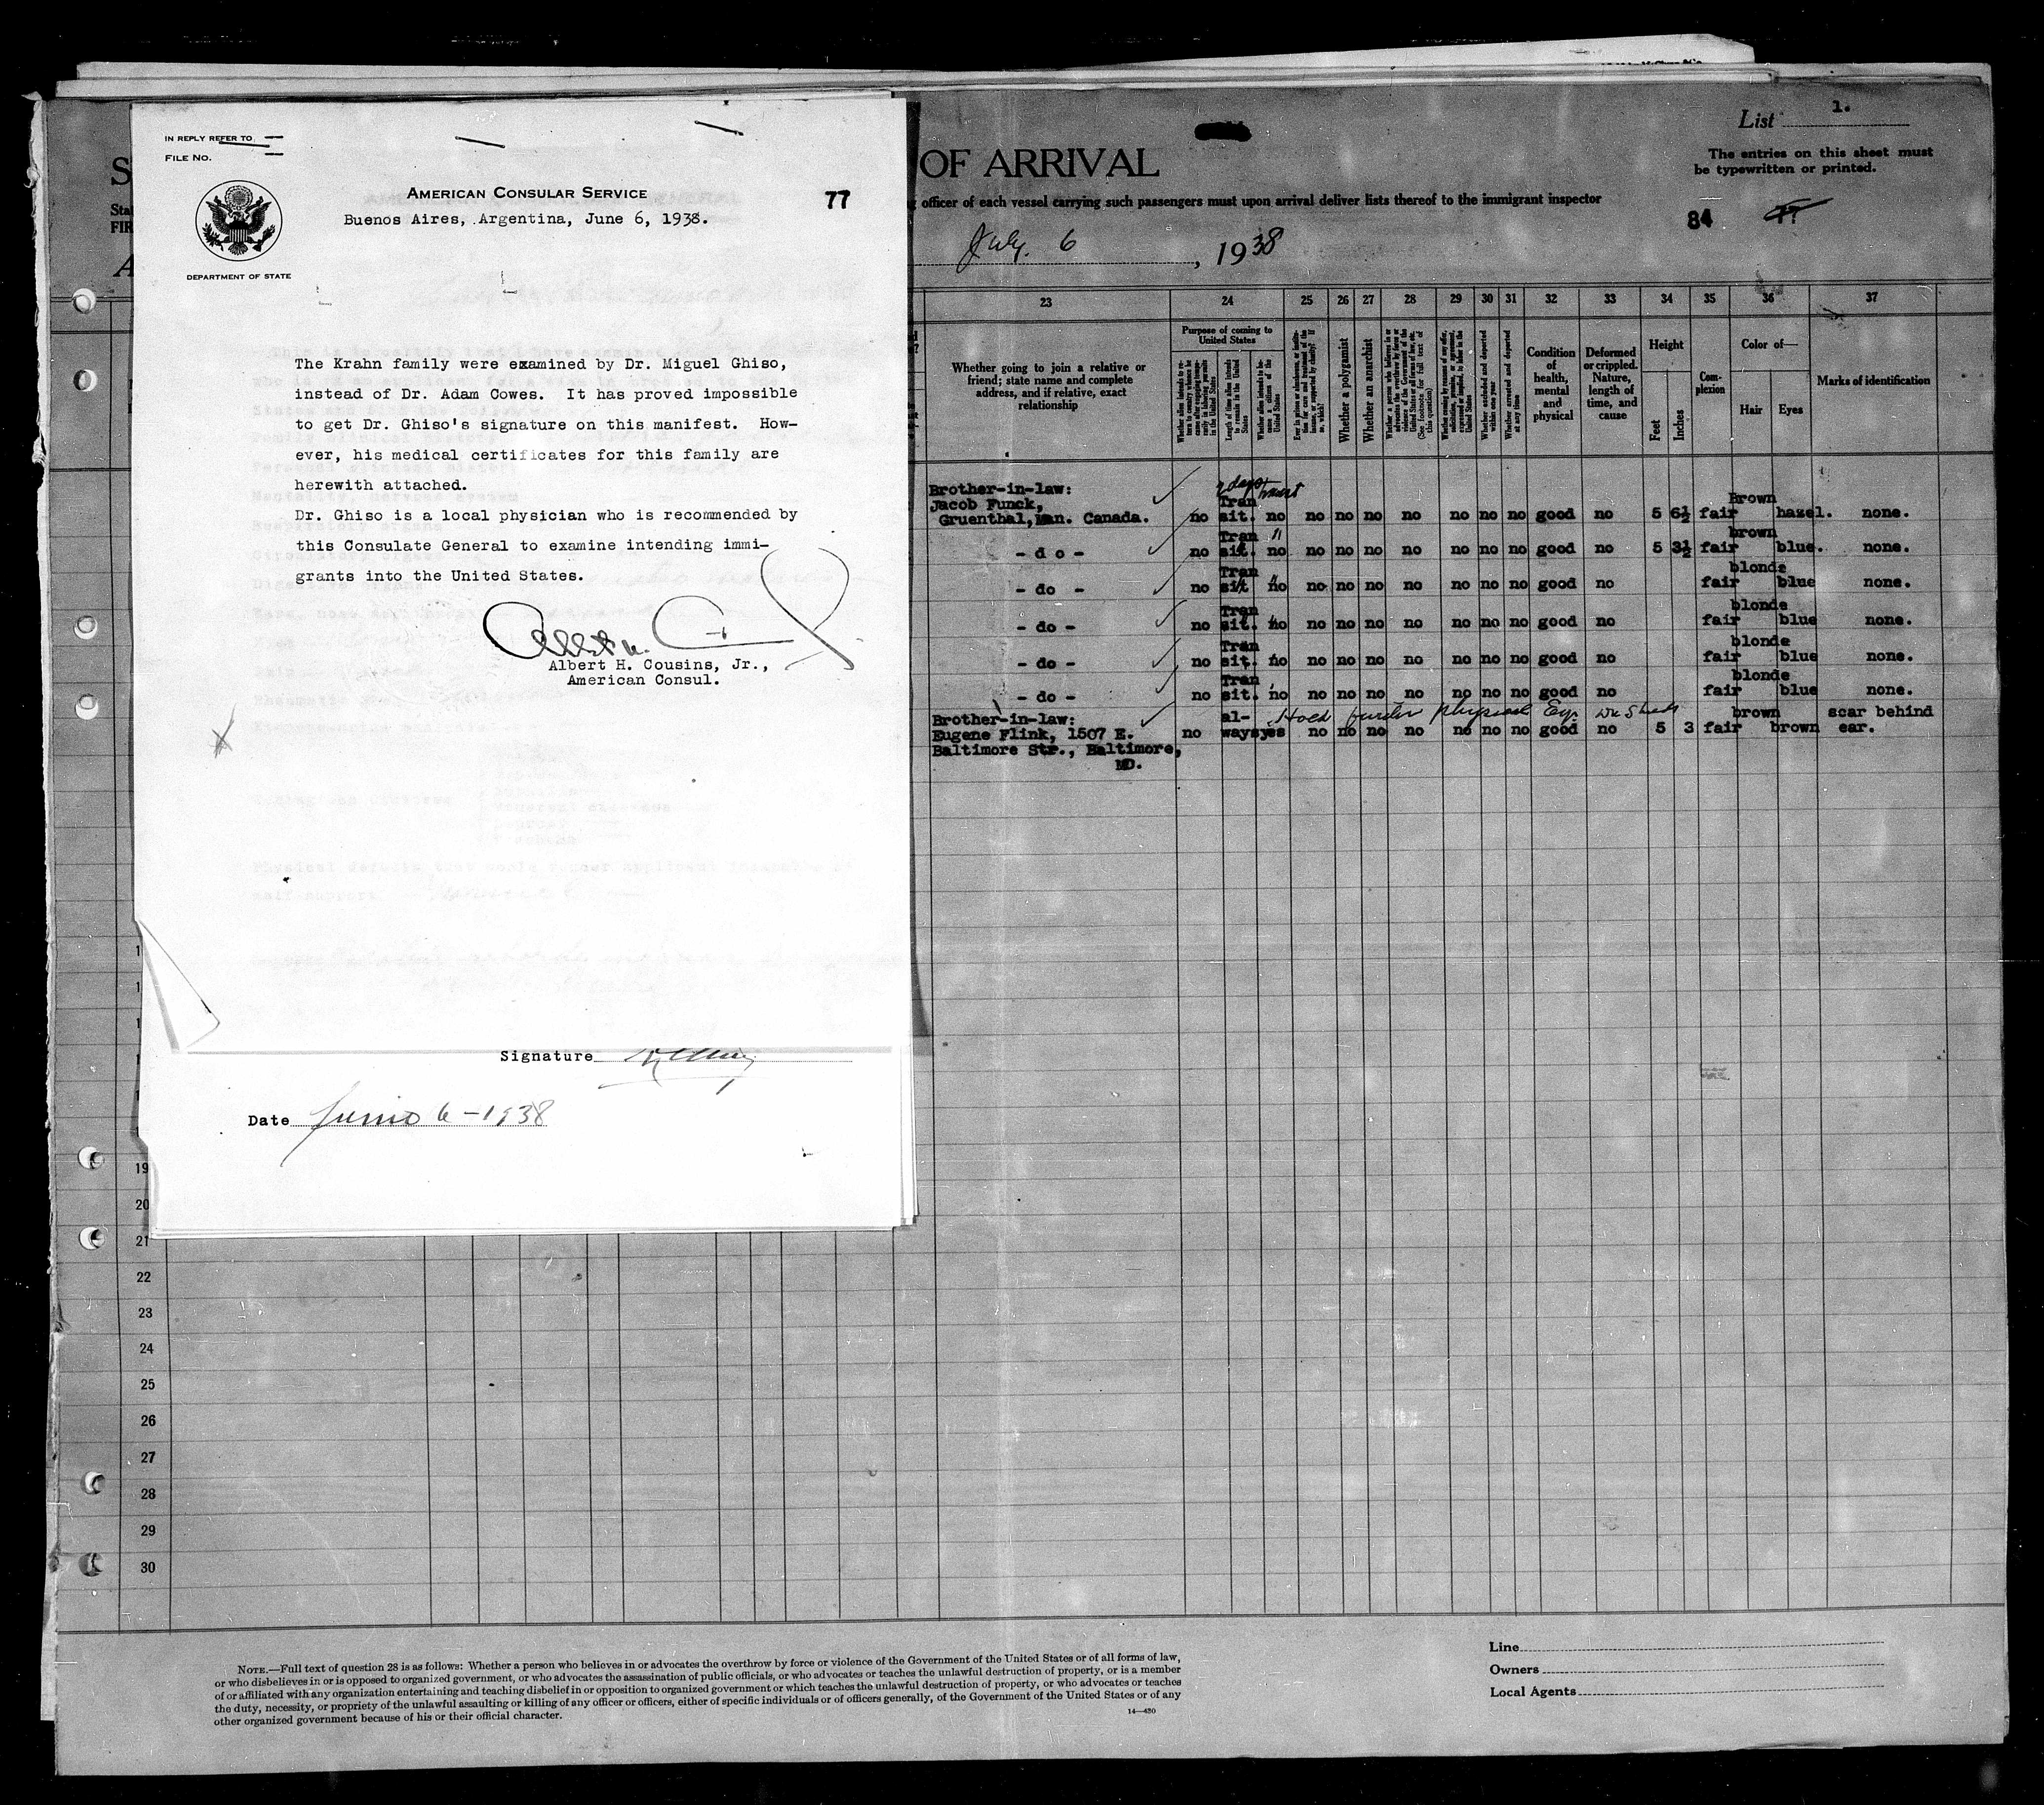 IN REPLY REFER TO
FILE NO.
AMERICAN CONSULAR SERVICE
77
Buenos Aires, Argentina, June 6, 1938.
DEPARTMENT OF STATE
The Krahn family were examined by Dr. Miguel Ghiso,
instead of Dr. Adam Cowes. It has proved impossible
to get Dr. Ghiso's signature on this manifest. How-
ever, his medical certificates for this family are
herewith attached.
Dr. Ghiso is a local physician who is recommended by
this Consulate General to examine intending immi-
grants into the United States.
Albert H. Cousins, Jr.,
American Consul.
Signature
Date Junio 6-1938
List 1.
OF ARRIVAL
The entries on this sheet must
be typewritten or printed.
officer of each vessel carrying such passengers must upon arrival deliver lists thereof to the immigrant inspector
84
July. 6, 1938
23 24 25 26 27 28 29 30 31 32 33 34 35 36 37
Whether going to join a relative or
friend; state name and complete
address, and if relative, exact
relationship
Purpose of coming to
United States
Whether a polygamist
Whether an anarchist
Condition
of
health,
mental
and
physical
Deformed
or crippled.
Nature,
length of
time, and
cause
Height
Feet
Inches
Com-
plexion
Color of—
Hair
Eyes
Marks of identification
Brother-in-law: 2 days transit
Jacob Funck, Tran Brown
Gruenthal, Man. Canada. no sit. no no no no no no no no good no 5 6½ fair hazel. none.
Tran " brown
- d o - no sit. no no no no no no no no good no 5 3½ fair blue. none.
Tran blonde
- do - no sit no no no no no no no no good no fair blue none.
Tran blonde
- do - no sit. no no no no no no no no good no fair blue none.
Tran blonde
- do - no sit. no no no no no no no no good no fair blue none.
Tran blonde
- do - no sit. no no no no no no no no good no fair blue none.
Brother-in-law: al- Hold further physical Ex. brown scar behind
Eugene Flink, 1507 E. no ways yes no no no no no no no good no 5 3 fair brown ear.
Baltimore Str., Baltimore,
MD.
19
20
21
22
23
24
25
26
27
28
29
30
NOTE.—Full text of question 28 is as follows: Whether a person who believes in or advocates the overthrow by force or violence of the Government of the United States or of all forms of law,
or who disbelieves in or is opposed to organized government, or who advocates the assassination of public officials, or who advocates or teaches the unlawful destruction of property, or is a member
of or affiliated with any organization entertaining and teaching disbelief in or opposition to organized government or which teaches the unlawful destruction of property, or who advocates or teaches
the duty, necessity, or propriety of the unlawful assaulting or killing of any officer or officers, either of specific individuals or of officers generally, of the Government of the United States or of any
other organized government because of his or their official character.
14—430
Line
Owners
Local Agents